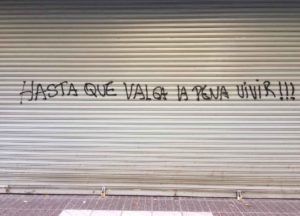 HASTA QUE VALGA LA PENA VIVIR!!!